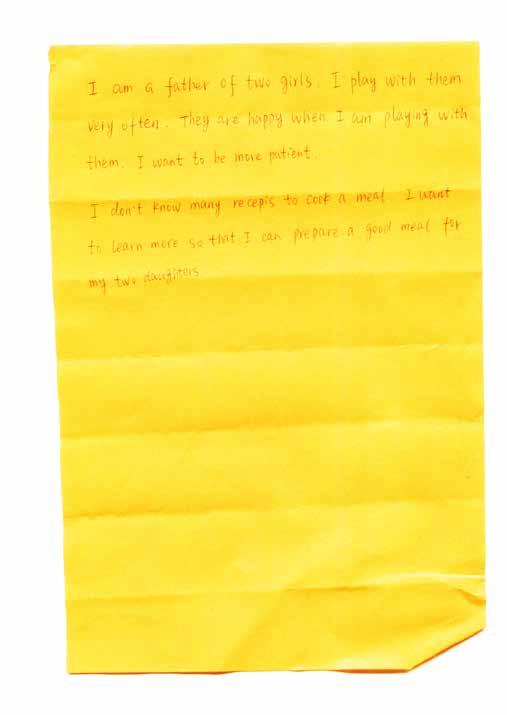 I am a father of two girls. I play with them
very often. They are happy when I am playing with
them. I want to be more patient.
I don't know many recepis to cook a meal. I want
to learn more so that I can prepare a good meal for
my two daughters